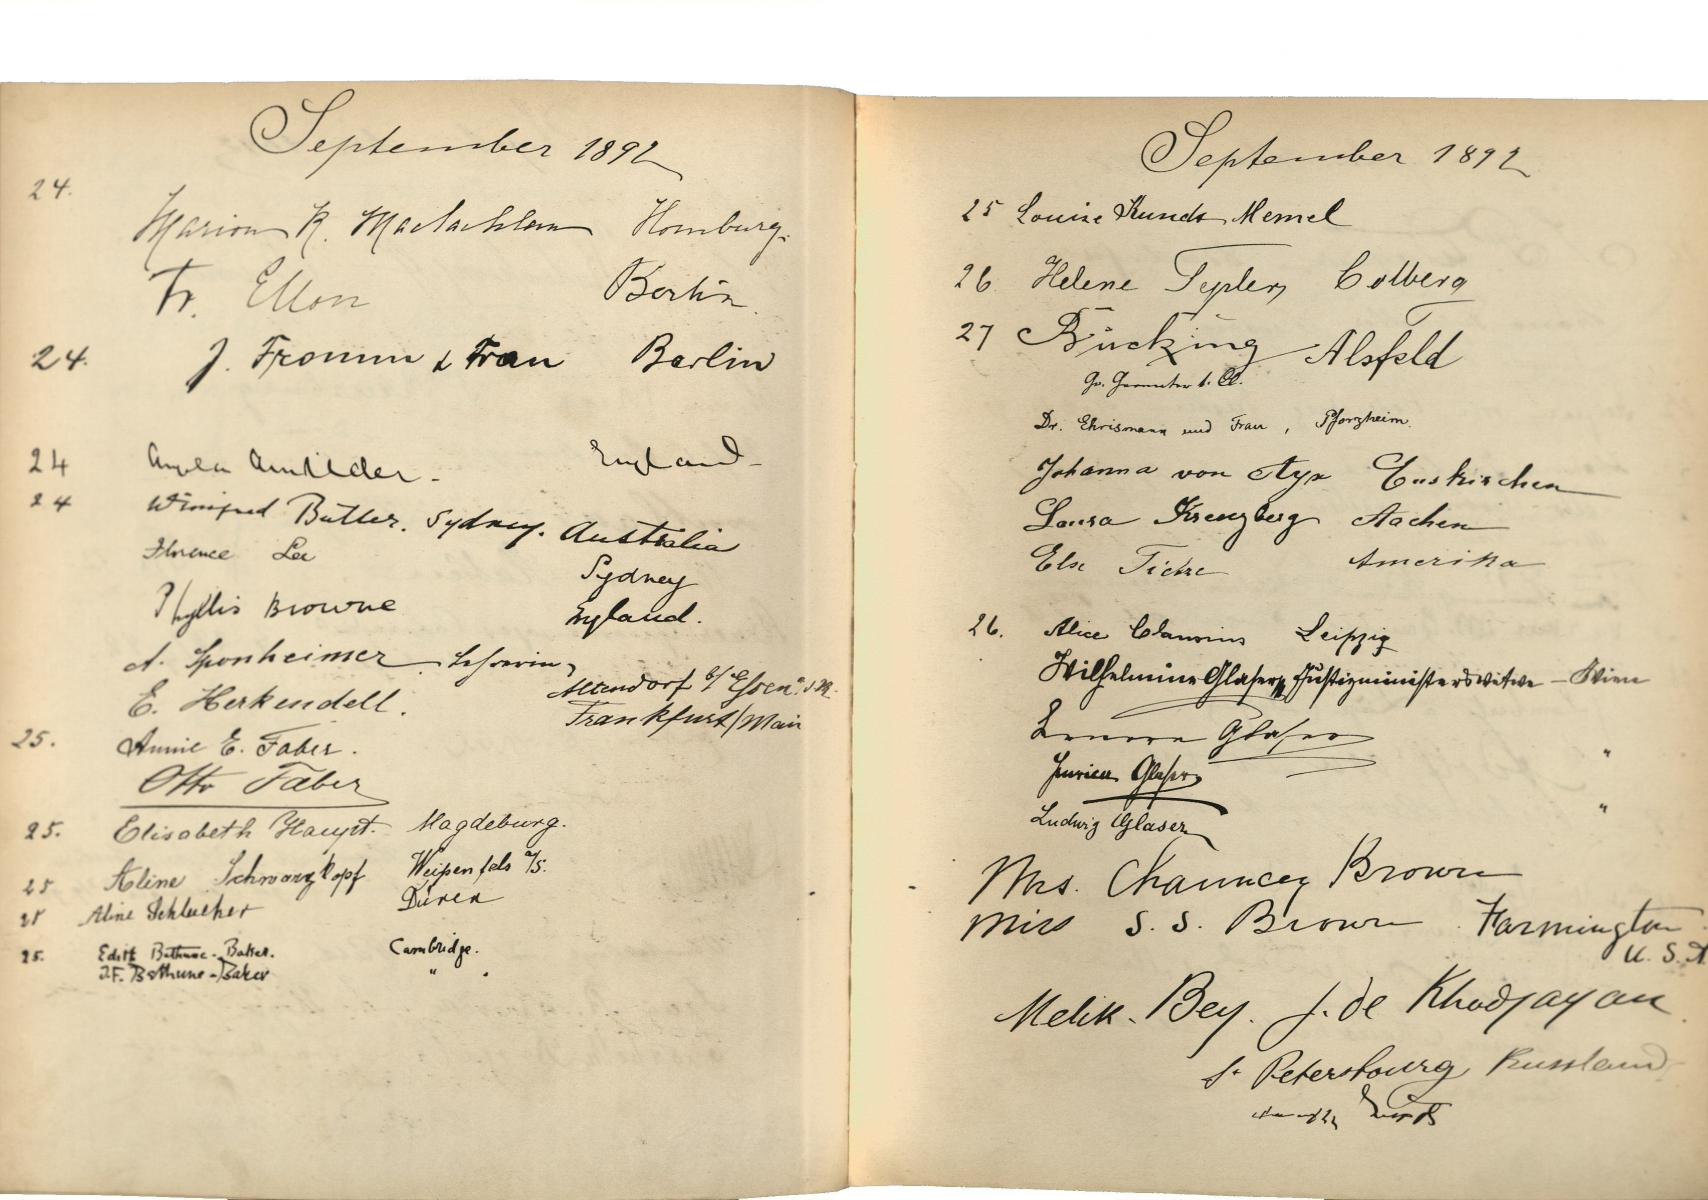 September 1892
24.
Marion R. Maclachlan Homburg.
Fr. Ellon Berlin.
24. J. Fromm & Frau Berlin
24 England
24 Winifred Butler. Sydney. Australia
Florence Lee Sydney
Phyllis Browne England.
A. Sponheimer Altendorf b/ Essen a. d. R.
E. Herkendell. Frankfurt/Main
25. Annie E. Faber.
Otto Faber
25. Elisabeth Haupt. Magdeburg.
25 Aline Schwarzkopf Weißenfels a/S.
25 Aline Schleicher Düren
25. Edith Bethune-Baker. Cambridge.
J.F. Bethune-Baker "
September 1892
25 Louise Memel
26 Helene Colberg
27 Bücking Alsfeld
Dr. Ehrismann und Frau, Pforzheim.
Johanna von Ayx Euskirchen
Laura Kreuzberg Aachen
Else Tietze Amerika
26. Alice Leipzig
Wilhelmine Glaser, Justizministerswitwe – Wien
Glaser "
Glaser
Ludwig Glaser "
Mrs. Chauncey Brown
Miss S. S. Brown Farmington
U. S. A
Melik. Bey. J. de Khodjayan
St Petersbourg Russland